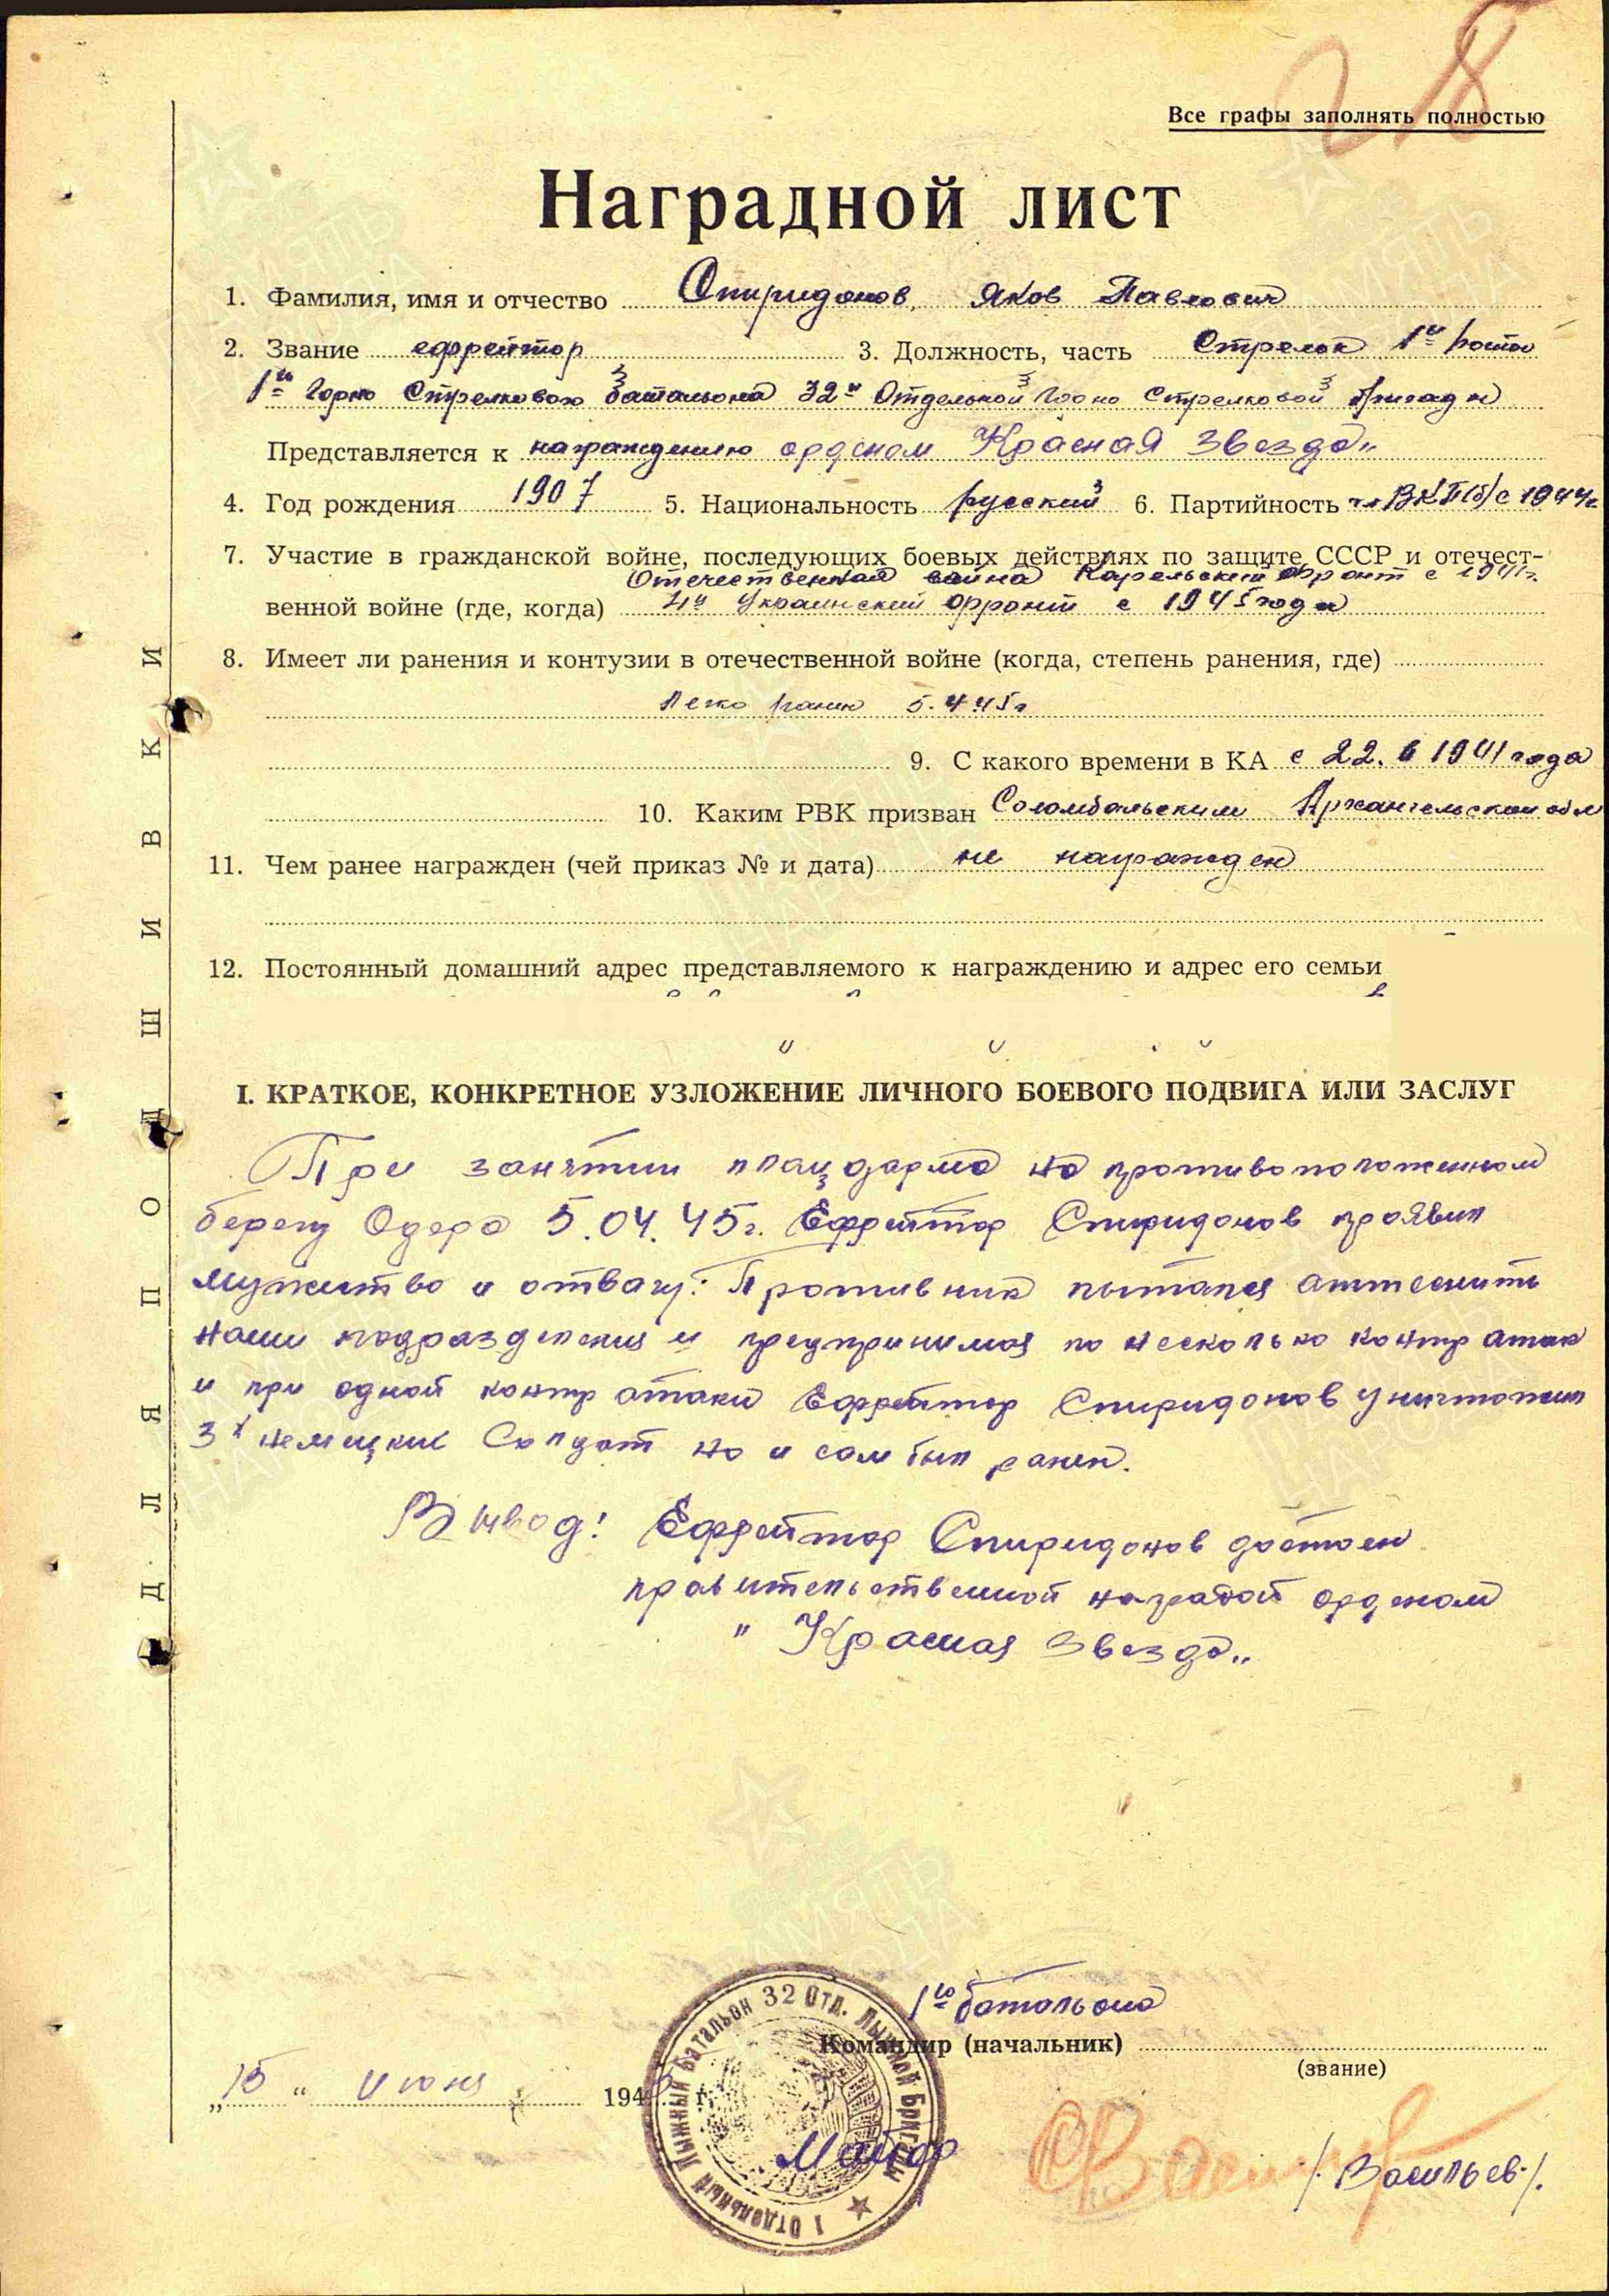 28
Все графы заполнять полностью
Наградной лист
1. Фамилия, имя и отчество Спиридонов, Яков Павлович
2. Звание ефрейтор 3. Должность, часть Стрелок 1й роты
1го Горно Стрелкового батальона 32й Отдельной Горно Стрелковой бригады
Представляется к награждению орденом Красная Звезда"
4. Год рождения 1907 5. Национальность русский 6. Партийность чл ВКП(б) с 1944г
7. Участие в гражданской войне, последующих боевых действиях по защите СССР и отечест-
Отечественная война Карельский фронт с 1941г.
венной войне (где, когда) 4й Украинский фронт с 1945 года
8. Имеет ли ранения и контузии в отечественной войне (когда, степень ранения, где)
Легко ранен 5.4.45г
9. С какого времени в КА с 22.6 1941 года
10. Каким РВК призван Соломбальским Архангельской обл
11. Чем ранее награжден (чей приказ № и дата) не награжден
12. Постоянный домашний адрес представляемого к награждению и адрес его семьи
I. КРАТКОЕ, КОНКРЕТНОЕ УЗЛОЖЕНИЕ ЛИЧНОГО БОЕВОГО ПОДВИГА ИЛИ ЗАСЛУГ
При занятии плацдарма на противоположенном
берегу Одера 5.04.45г. Ефрейтор Спиридонов проявил
мужество и отвагу: Противник пытался оттеснить
наши подразделения и предпринимая по несколько контр атак
и при одной контр атаки Ефрейтор Спиридонов уничтожил
3х немецких Солдат но и сам был ранен.
Вывод! Ефрейтор Спиридонов достоен
правительственной наградой орденом
" Красная Звезда"
1го батальона
Командир (начальник)
(звание)
„15 " Июня 1945 г.
Майор
/Васильев/.
1 Отдельный Лыжный Батальон 32 Отд. Лыжной Бригады
ДЛЯ ПОДШИВКИ
ПАМЯТЬ НАРОДА